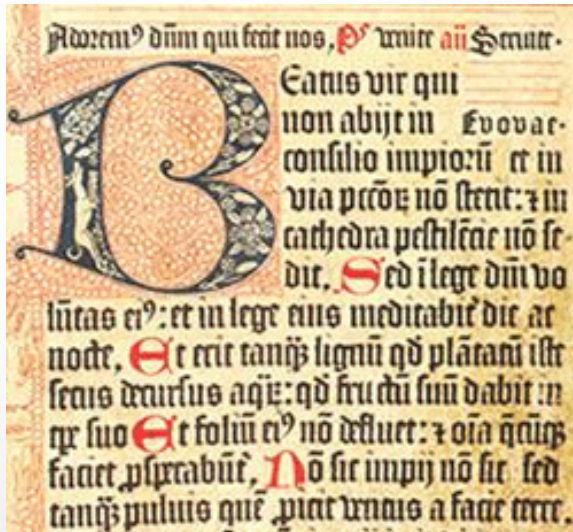 Adorem⁹ dn̄m qui fecit nos, p̄s venite an̄ Servite.
Beatus vir qui
non abijt in Evovae.
consilio impiorū et in
via pctōꝝ nō stetit: ⁊ in
cathedra pestilēcie nō se-
dit, Sed ī lege dn̄i vo
lūtas ei⁹: et in lege eius meditabit᷑ die ac
nocte, Et erit tanqꝫ lignū qd̄ plātatū iste
secus decursus aqꝝ: qd̄ fructū suū dabit in
tpr̄ suo Et foliū ei⁹ nō defluet: ⁊ oīa q̄cūqꝫ
faciet ꝓsperabūt᷑, Nō sic impij nō sic sed
tanqꝫ pulvis quē ꝓicit ventus a facie terre,